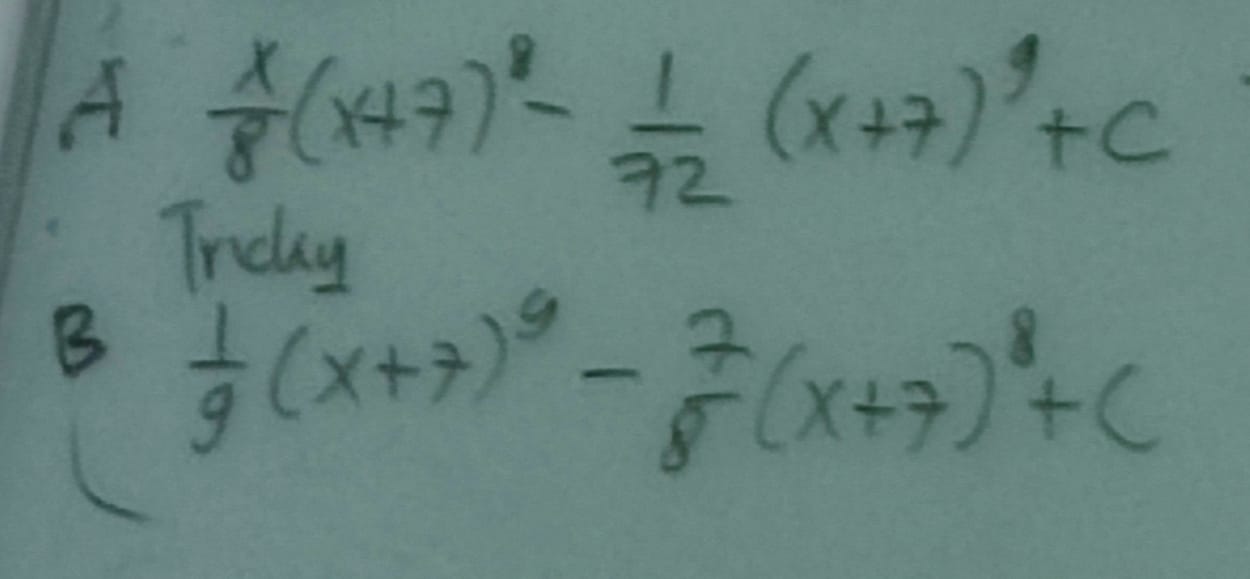 A x/8 (x+7)⁸ - 1/72 (x+7)⁹ + C
Tricky
B 1/9 (x+7)⁹ - 7/8 (x+7)⁸ + C